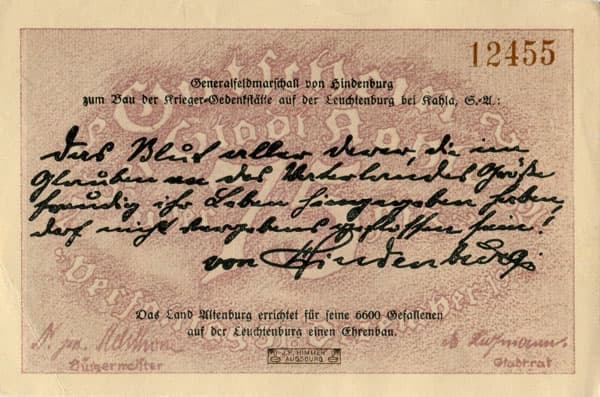 12455
Generalfeldmarschall von Hindenburg
zum Bau der Krieger-Gedenkstätte auf der Leuchtenburg bei Kahla, S.-A.:
Das Blut aller derer, die im
Glauben an des Vaterlandes Größe
freudig ihr Leben hingegeben haben,
darf nicht vergebens geflossen sein!
von Hindenburg.
Das Land Altenburg errichtet für seine 6600 Gefallenen
auf der Leuchtenburg einen Ehrenbau.
Bürgermeister
Stadtrat
J.P. HIMMER
AUGSBURG